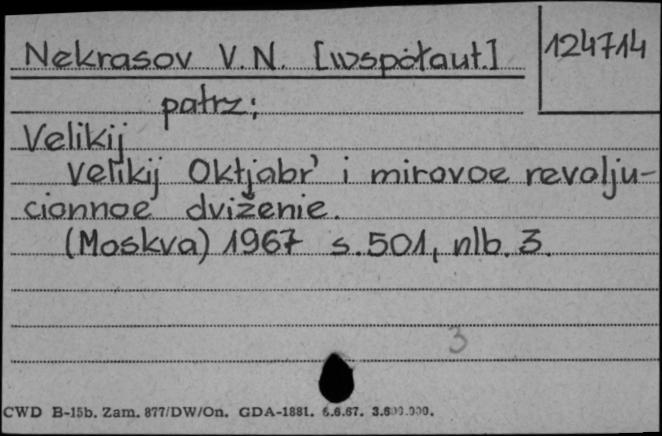 Nekrasov V.N. [współaut.] 124714
patrz:
Velikij
Velikij Oktjabr' i mirovoe revolju-
cionnoe dviženie.
(Moskva) 1967 s. 501, nlb. 3.
3
CWD B-15b. Zam. 877/DW/On. GDA-1881. 6.6.67. 3.600.000.